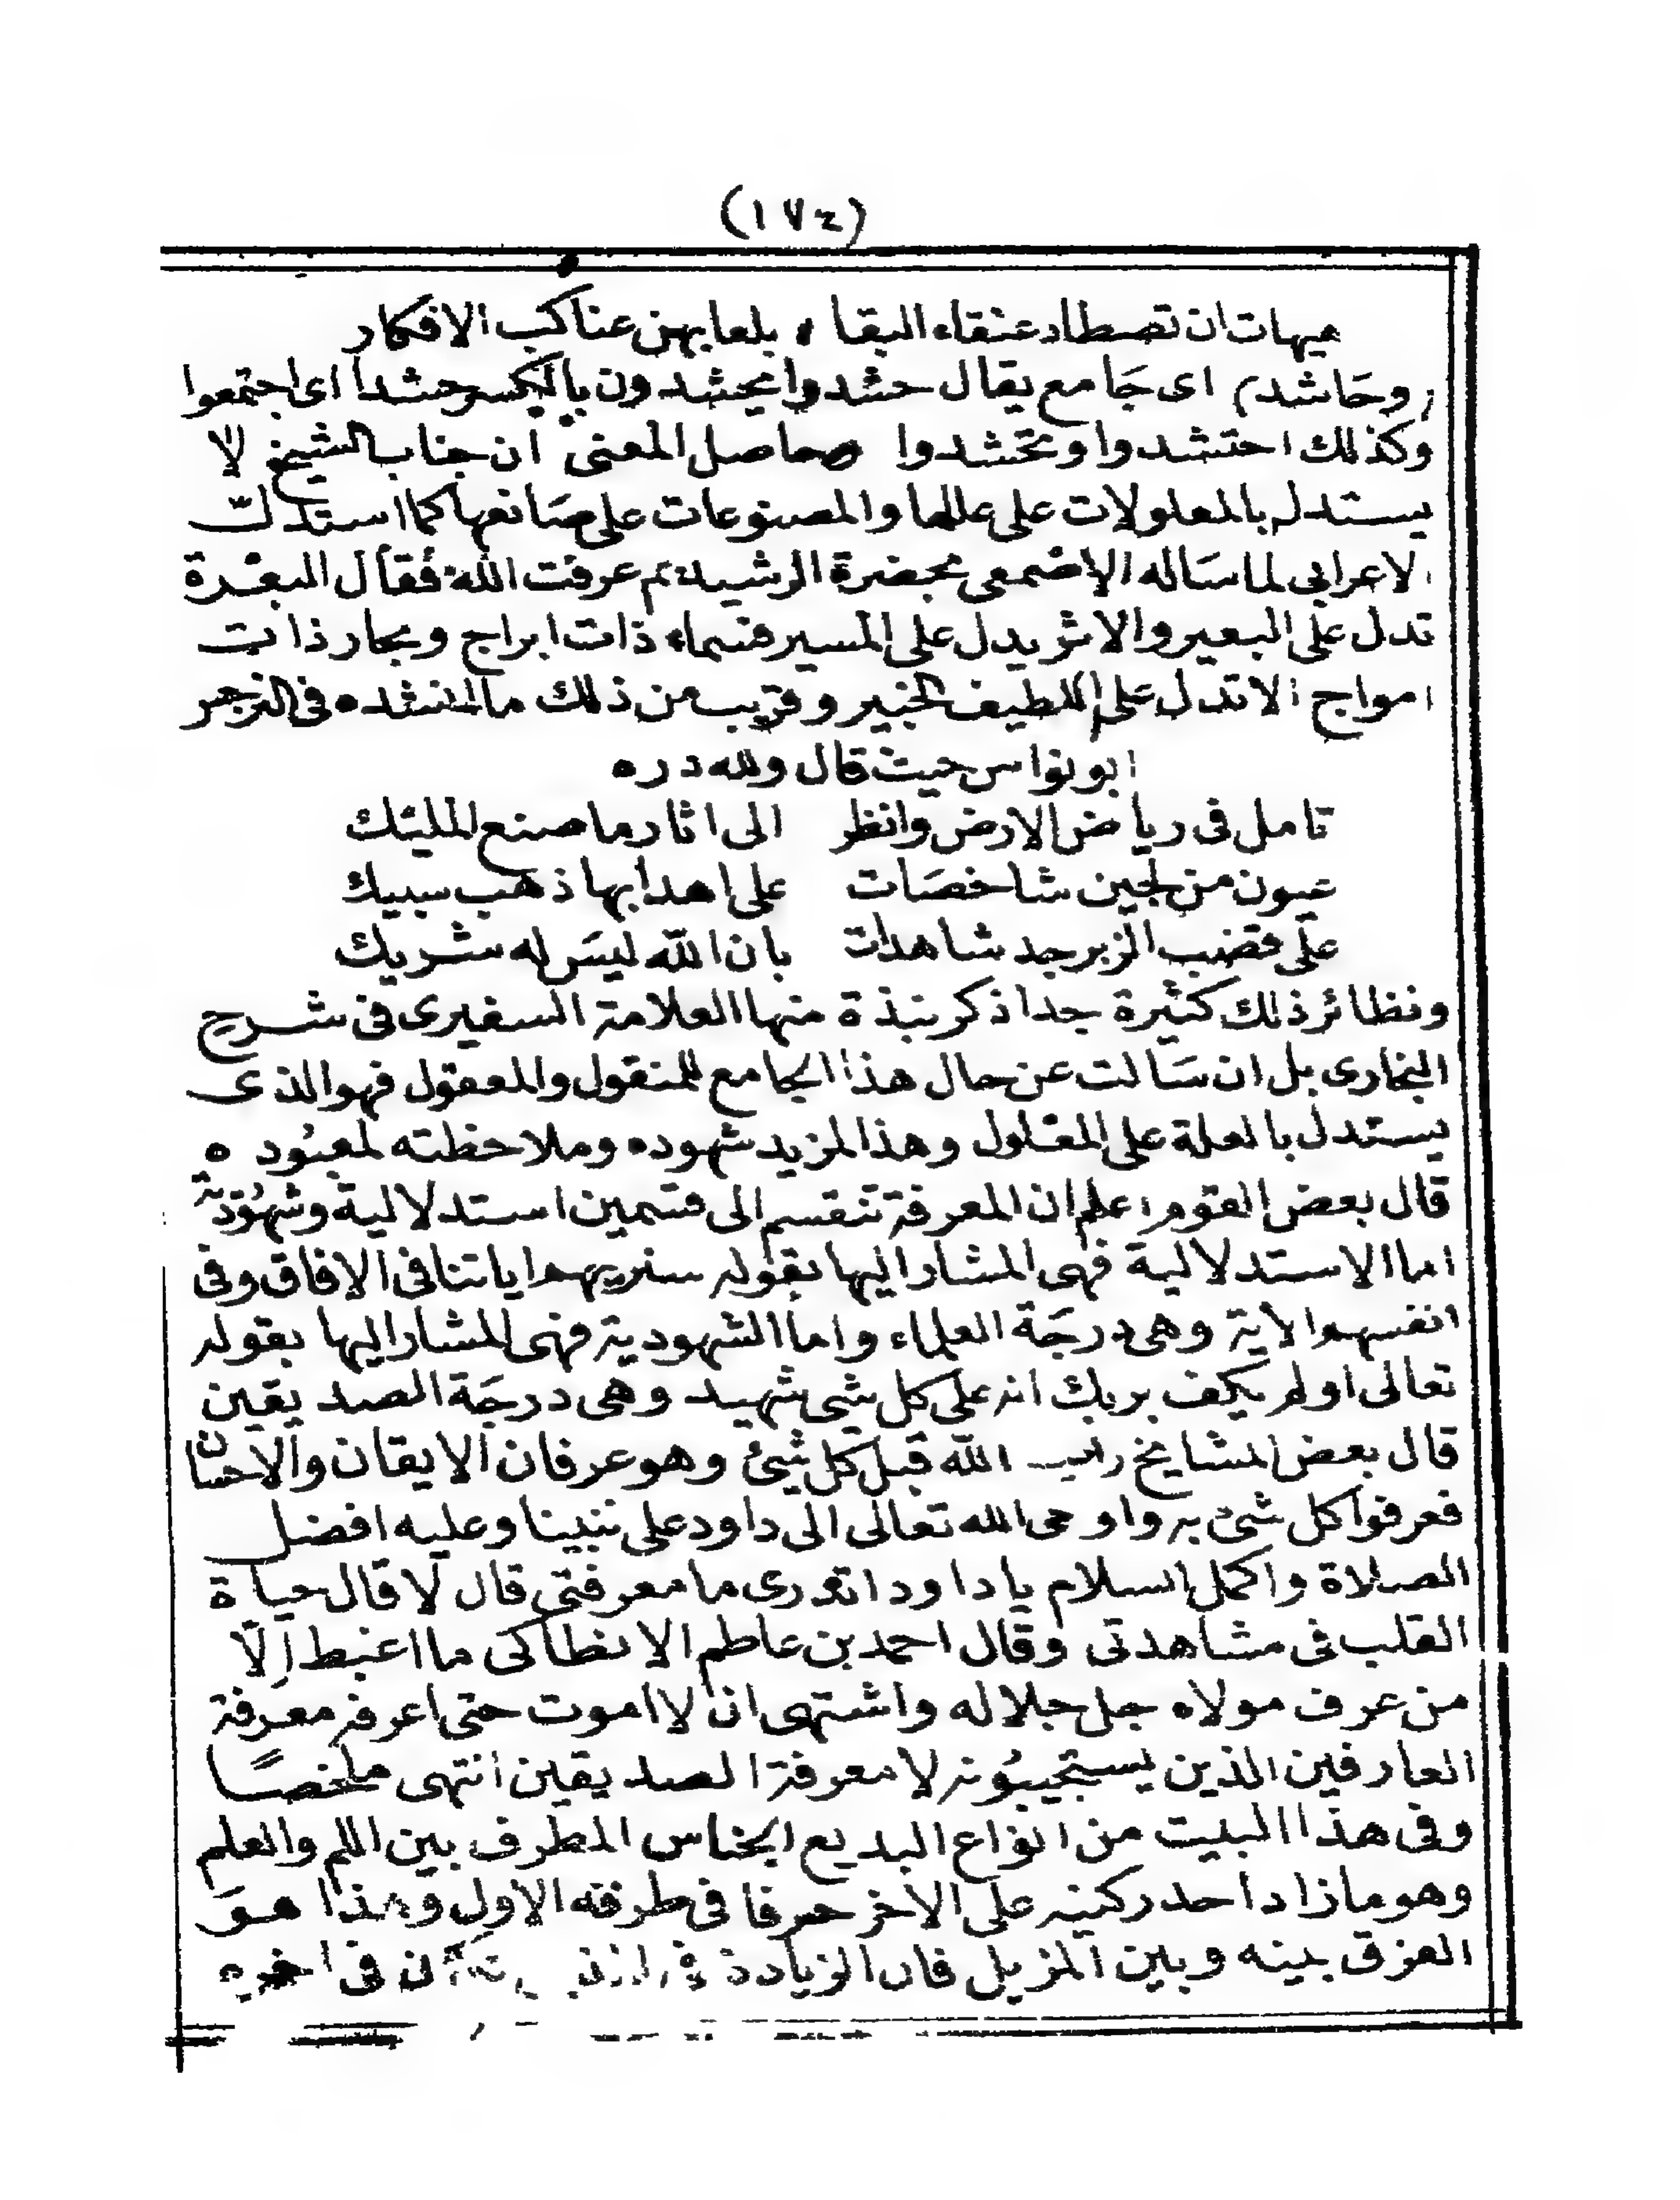 (١٧٤)
هيهات ان تصطاد عنقاء البقا ، بلعابهن عناكب الافكار
(وحاشد) اى جامع يقال حشدوا يحشدون بالكسر حشدا اى اجتمعوا
وكذلك احتشدوا وتحشدوا وحاصل المعنى ان جناب الشيخ لا
يستدل بالمعلولات على عللها والمصنوعات على صانعها كما استدلّ
الاعرابى لما ساله الاصمعى بحضرة الرشيد بم عرفت الله فقال البعرة
تدل على البعير والاثر يدل على المسير فسماء ذات ابراج وبحار ذات
امواج الا تدل على اللطيف الخبير وقريب من ذلك ما انشده فى النرجس
ابو نواس حيث قال ولله دره
تامل فى رياض الارض وانظر الى اثار ما صنع المليك
عيون من لجين شاخصات على اهدابها ذهب سبيك
على قضب الزبرجد شاهدات بان الله ليس له شريك
ونظائر ذلك كثيرة جدا ذكر نبذة منها العلامة السفيرى فى شرح
البخارى بل ان سالت عن حال هذا الجامع للمنقول والمعقول فهو الذى
يستدل بالعلة على المعلول وهذا لمزيد شهوده وملاحظته لمعبوده
قال بعض القوم اعلم ان المعرفة تنقسم الى قسمين استدلالية وشهودية
اما الاستدلالية فهى المشار اليها بقوله سنريهم اياتنا فى الافاق وفى
انفسهم الاية وهى درجة العلماء واما الشهودية فهى المشار اليها بقوله
تعالى اولم يكف بربك انه على كل شى شهيد وهى درجة الصديقين
قال بعض المشايخ رايت الله قبل كل شئ وهو عرفان الايقان والاحسان
فعرفوا كل شئ به واوحى الله تعالى الى داود على نبينا وعليه افضل
الصلاة واكمل السلام يا داود اتدرى ما معرفتى قال لا قال حياة
القلب فى مشاهدتى وقال احمد بن عاطم الانطاكى ما اغبط الّا
من عرف مولاه جل جلاله واشتهى ان لا اموت حتى اعرفه معرفة
العارفين الذين يستجيبونه لا معرفة الصديقين انتهى ملخصًا
وفى هذا البيت من انواع البديع الجناس المطرف بين اللم والعلم
وهو ما زاد احد ركنيه على الاخر حرفا فى طرفه الاول وهذا هو
الفرق بينه وبين المزيل فان الزيادة فى تكون فى اخره